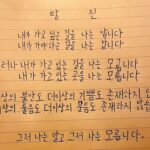 탈 진
내가 가고 싶은 길을 나는 압니다
내가 가야하는 길을 나는 압니다
러나 내가 가고 있는 길을 나는 모릅니다
내가 가고 있는 곳을 나는 모릅니다
상의 불안도 더이상의 기쁨도 존재하지 않
상의 울음도 더이상의 웃음도 존재하지 않
그저 나는 알고 그저 나는 모릅니다.